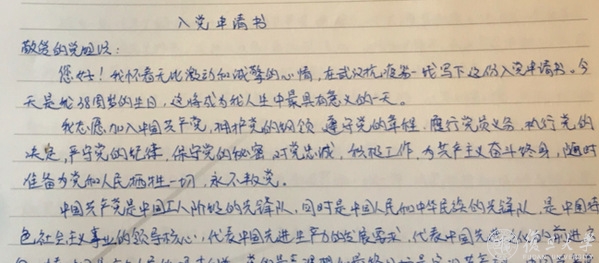 入党申请书
敬爱的党组织：
您好！我怀着无比激动和诚挚的心情，在武汉抗疫第一线写下这份入党申请书。今
天是我38周岁的生日，这将成为我人生中最具有意义的一天。
我志愿加入中国共产党，拥护党的纲领，遵守党的章程，履行党员义务，执行党的
决定，严守党的纪律，保守党的秘密，对党忠诚，积极工作，为共产主义奋斗终身，随时
准备为党和人民牺牲一切，永不叛党。
中国共产党是中国工人阶级的先锋队，同时是中国人民和中华民族的先锋队，是中国特
色社会主义事业的领导核心，代表中国先进生产力的发展要求，代表中国先进文化的前进方
复旦大学